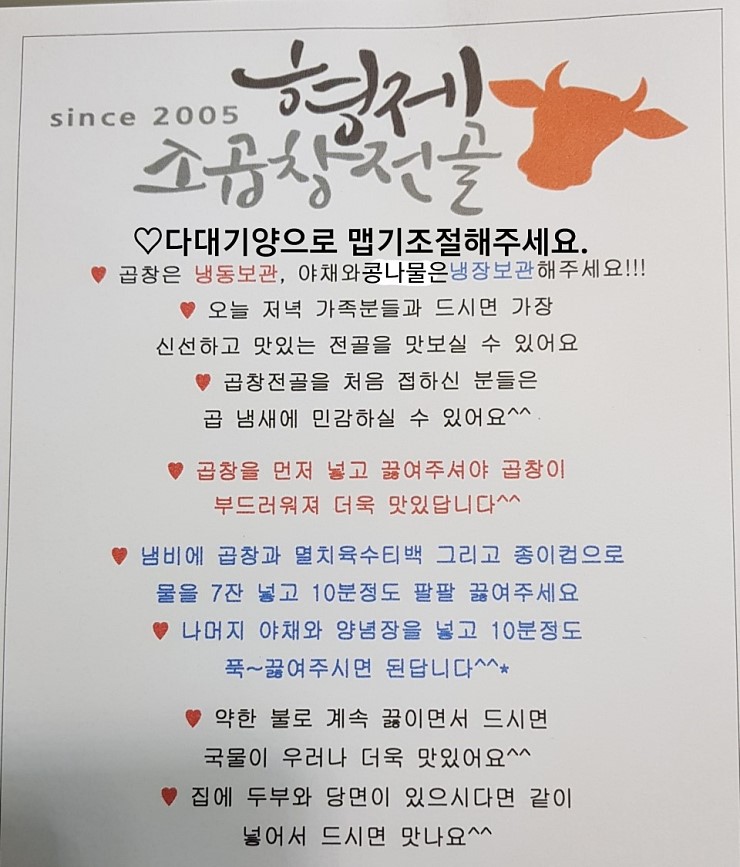 since 2005 형제
소곱창전골
♡다대기양으로 맵기조절해주세요.
♥ 곱창은 냉동보관, 야채와콩나물은냉장보관해주세요!!!
♥ 오늘 저녁 가족분들과 드시면 가장
신선하고 맛있는 전골을 맛보실 수 있어요
♥ 곱창전골을 처음 접하신 분들은
곱 냄새에 민감하실 수 있어요^^
♥ 곱창을 먼저 넣고 끓여주셔야 곱창이
부드러워져 더욱 맛있답니다^^
♥ 냄비에 곱창과 멸치육수티백 그리고 종이컵으로
물을 7잔 넣고 10분정도 팔팔 끓여주세요
♥ 나머지 야채와 양념장을 넣고 10분정도
푹~끓여주시면 된답니다^^*
♥ 약한 불로 계속 끓이면서 드시면
국물이 우러나 더욱 맛있어요^^
♥ 집에 두부와 당면이 있으시다면 같이
넣어서 드시면 맛나요^^